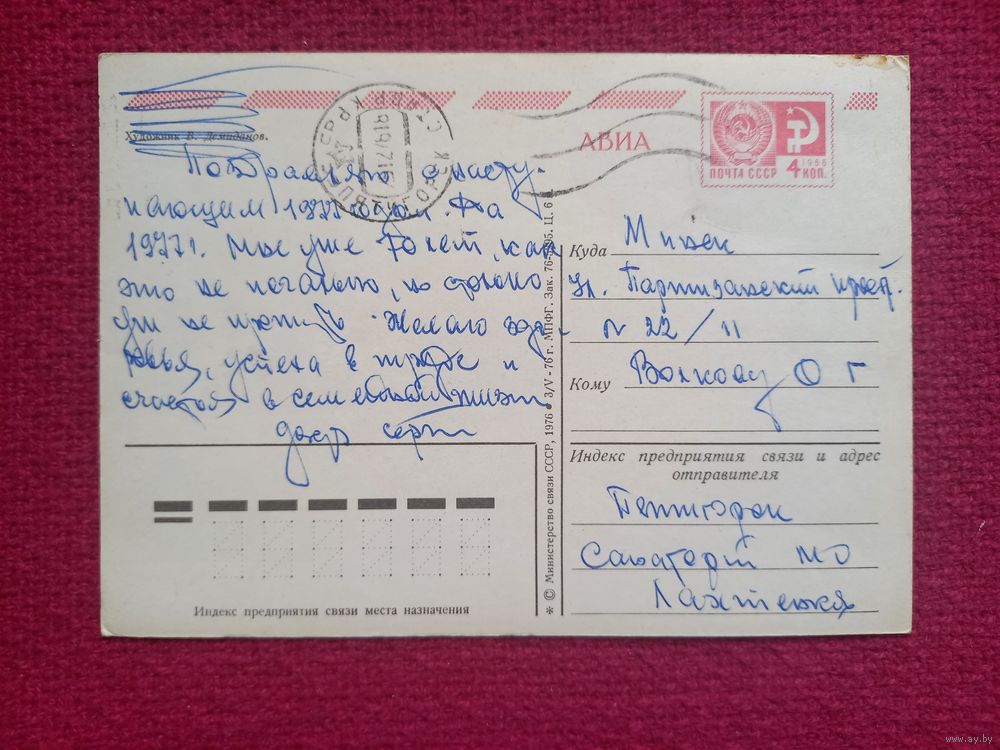 Художник В. Демиданов.
АВИА
ПОЧТА СССР 4 КОП.
1966
1977 годом. На
1977г. Мы уже 70 лет, как
это не печально, но
не Желаю здо-
ровья, успеха в труде и
счастья в семейной жизни
Куда Минск
ул. Партизанский
N 22/11
Кому Волкову О Г
Индекс предприятия связи и адрес
отправителя
Пятигорск
Санаторий МО
Индекс предприятия связи места назначения
* © Министерство связи СССР, 1976 3/V-76 г. МПФГ. Зак. Ц. 6
www.ay.by